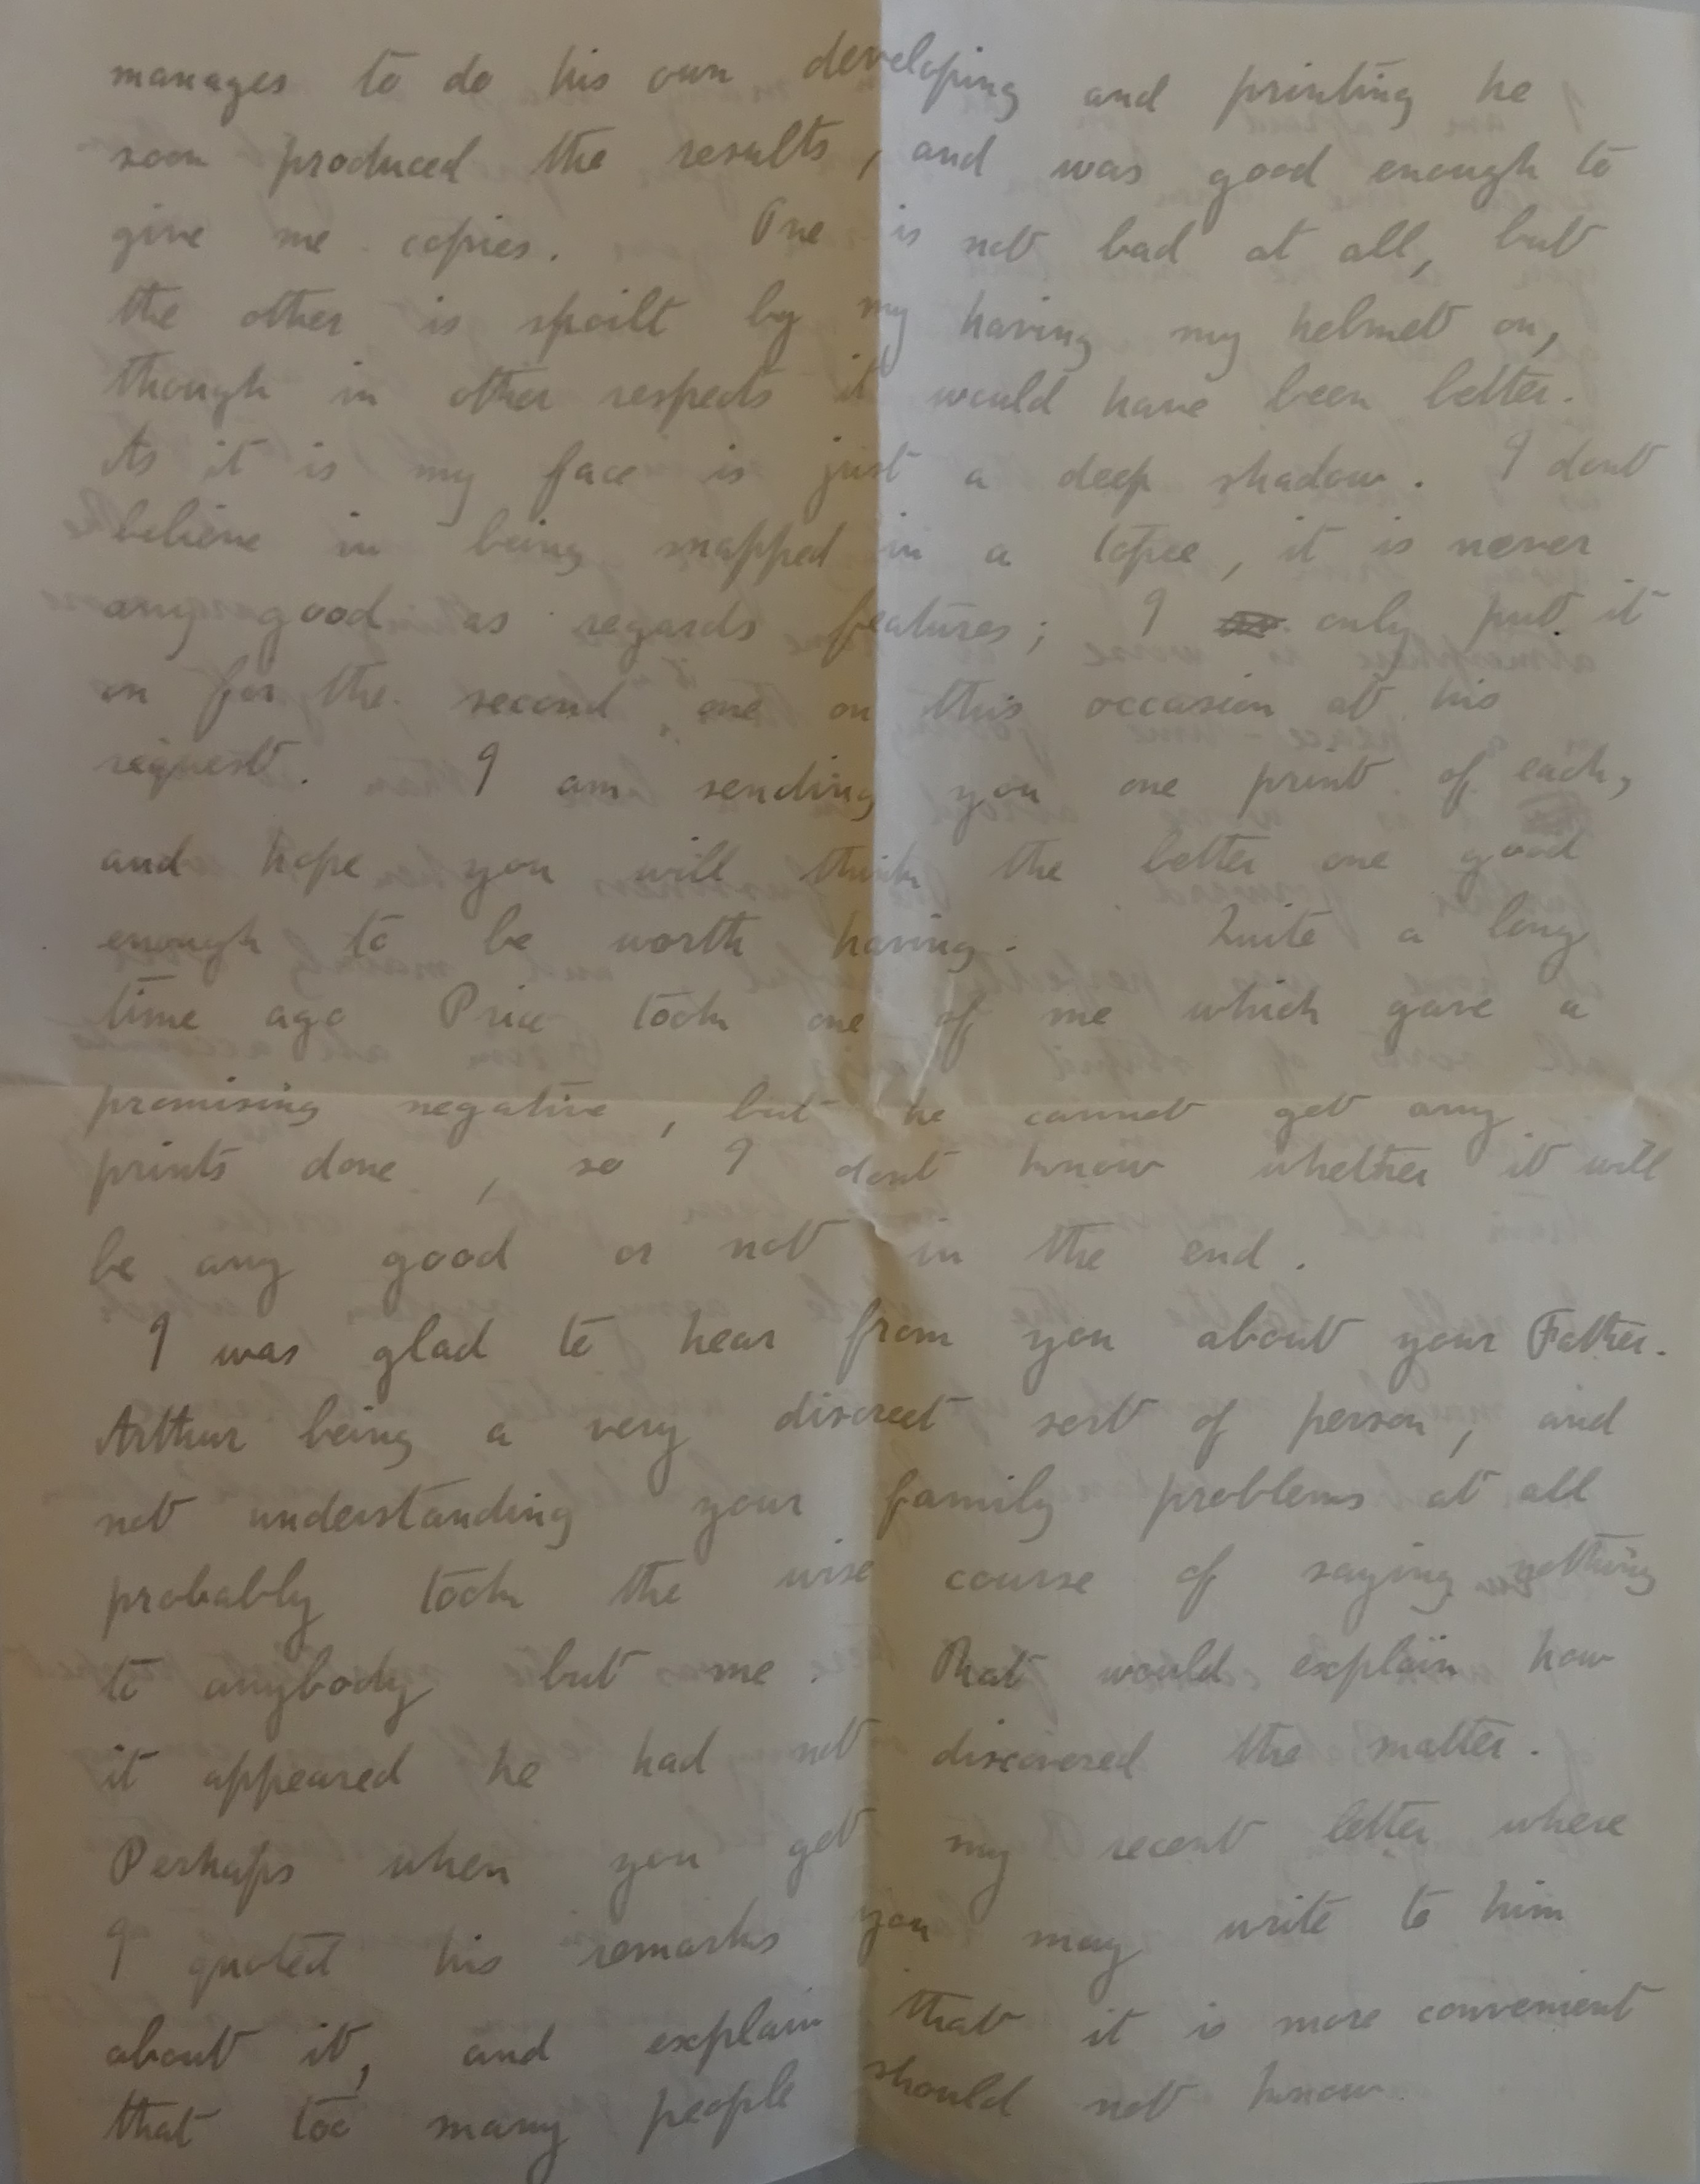 manages to do his own developing and printing he
soon produced the results, and was good enough to
give me copies. One is not bad at all, but
the other is spoilt by my having my helmet on,
though in other respects it would have been better.
As it is my face is just a deep shadow. I dont
believe in being snapped in a topee, it is never
any good as regards features; I only put it
on for the second one on this occasion at his
request. I am sending you one print of each,
and hope you will think the better one good
enough to be worth having. Quite a long
time ago Price took one of me which gave a
promising negative, but he cannot get any
prints done, so I dont know whether it will
be any good or not in the end.
I was glad to hear from you about your Father.
Arthur being a very discreet sort of person, and
not understanding your family problems at all
probably took the wise course of saying nothing
to anybody but me. That would explain how
it appeared he had not discovered the matter.
Perhaps when you get my recent letter where
I quoted his remarks you may write to him
about it, and explain that it is more convenient
that too many people should not know.